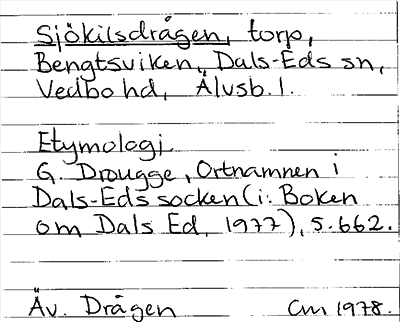 Sjökilsdrågen, torp,
Bengtsviken, Dals-Eds sn,
Vedbo hd, Älvsb. l.
Etymologi
G. Drougge, Ortnamnen i
Dals-Eds socken (i: Boken
om Dals Ed, 1977), s. 662.
Äv. Drågen CM 1978.